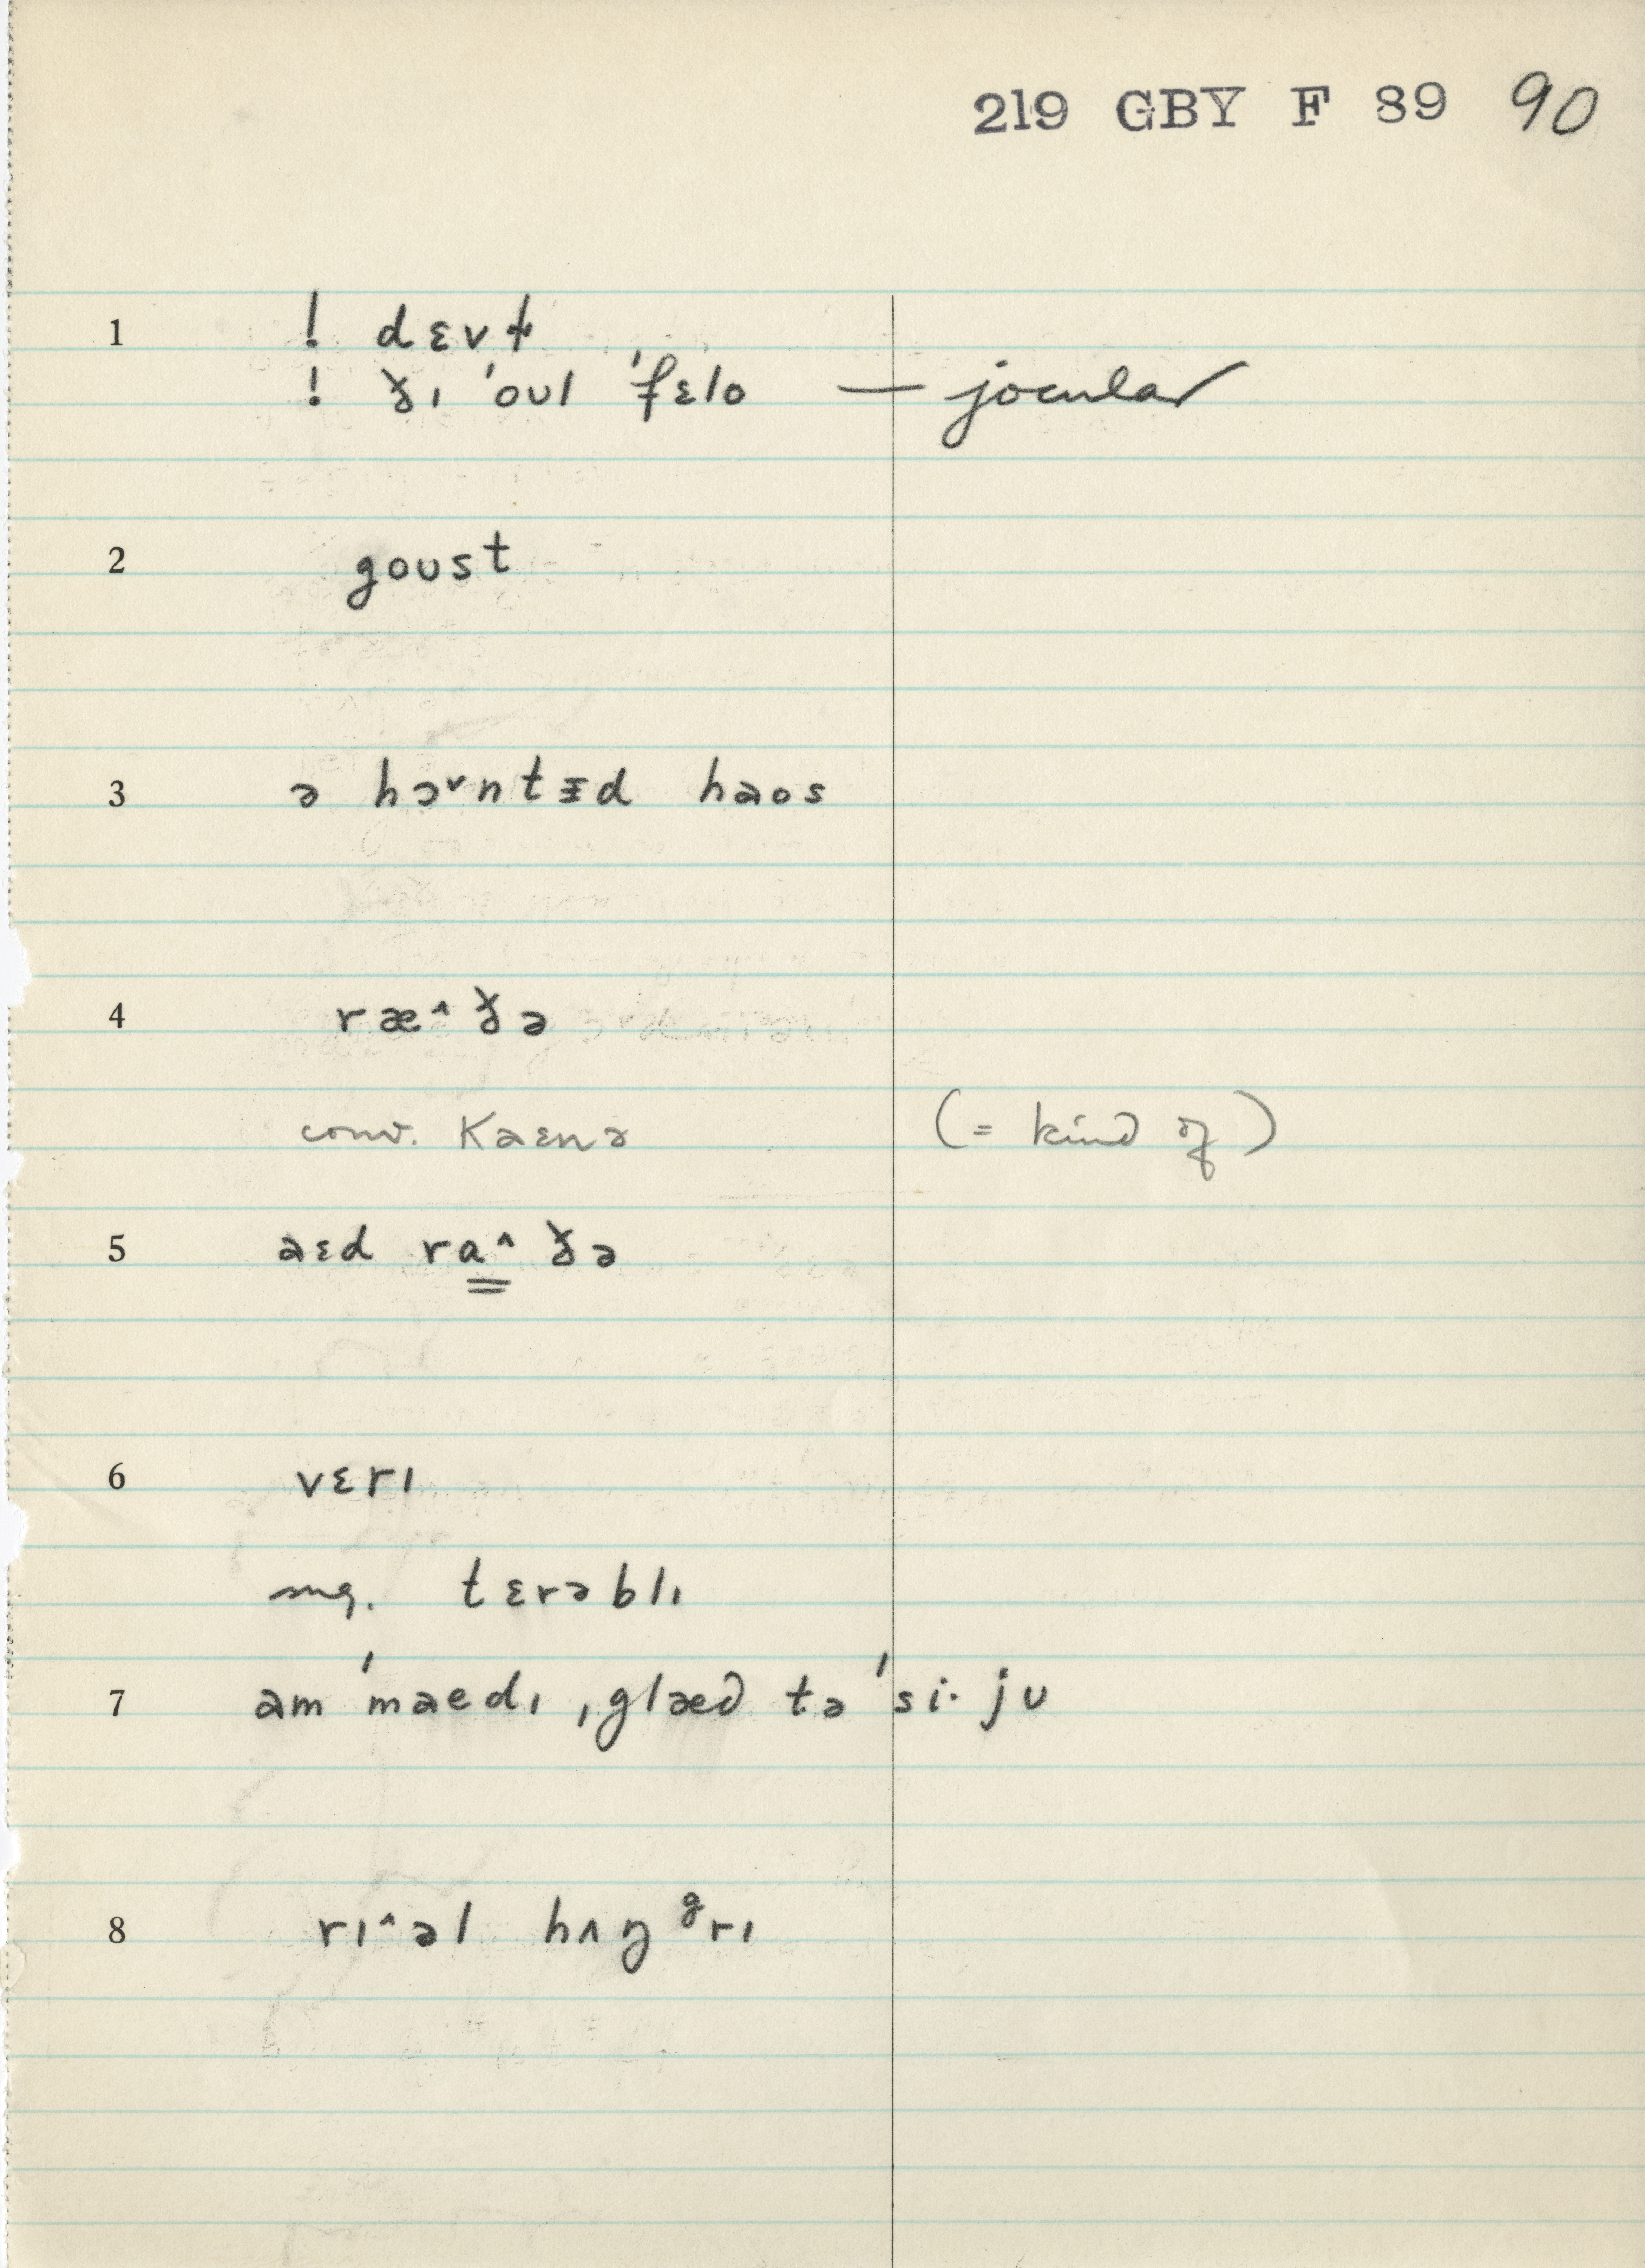 219 GBY F 89 90
1 ! dɛvɫ
! ð̵ɪ 'oʊl 'fɛlo — jocular
2 goʊst
3 ə hɔ˅ntɨd haos
4 ræ^ðə
conv. Kaɛnə (= kind of)
5 aɛd ra^ðə
6 vɛrɪ
sug. tɛrəblɪ
7 am 'maedɪ ˌglæd tə 'si· jʊ
8 rɪ^əl hʌŋᵍrɪ